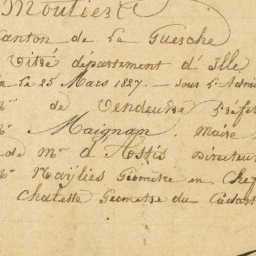 Moutiers
Canton de La Guerche
Vitré département d'Ille
le 25 Mars 1827. — sous l'Admi
Mr de Vendeuvre Préfet
Mr Maignan. Maire
de Mr d'Astis Directeur
Mr Naylies Géomètre en Chef
Chalette Géomètre du Cadast